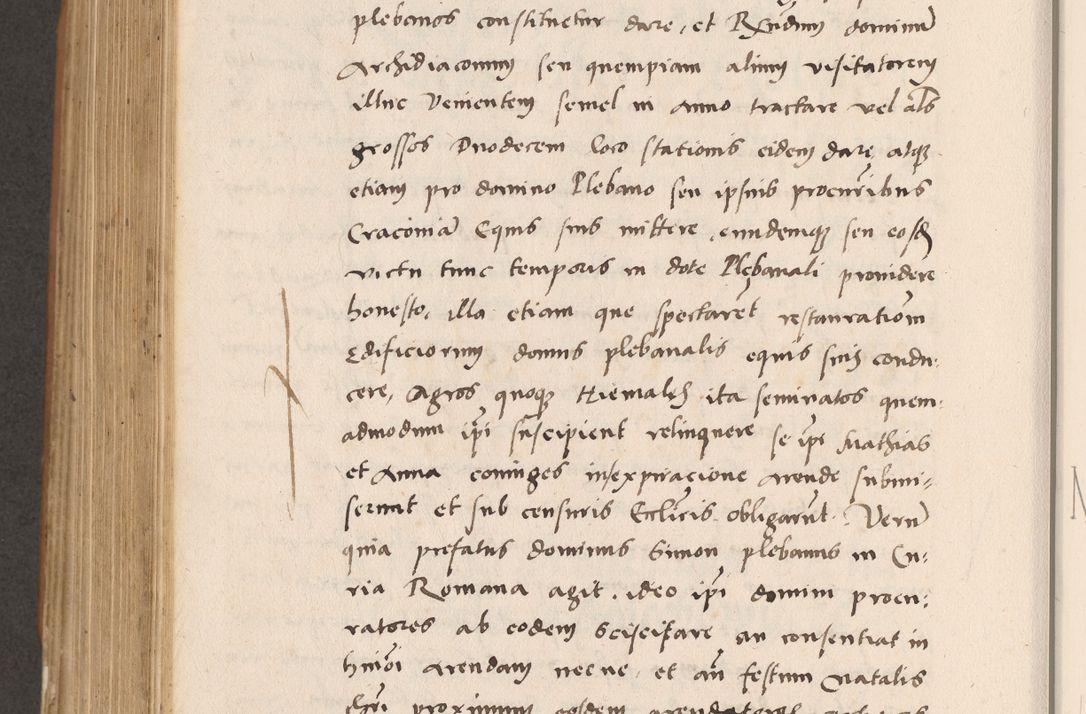 plebanos constituetur dare, et R̃ndum dominũ
Archidiaconum seu quempiam alium visitatorem
illuc venientem semel in anno tractare vel als
grossos Duodecem loco stationis eidem dare, atque
etiam pro domino Plebano seu ipsius procurībus
Cracoviã Equis suis mittere, eundemque seu eosd
victu tunc temporis in dote Plebanali providere
honesto, illa etiam que spectarēt restaurationem
Edificiorum domus plebanalis equis suis condu-
cere, Agros quoque Hiemales ita seminatos quem-
admodum ipi suscipient relinquere se ipi Mathias
et Anna coniuges in expiracione arende submi-
serunt et sub censuris Ecclīcis obligarūt. Verũ
quia prefatus dominus Simon plebanus in Cu-
ria Romana agit, ideo ipi domini procu-
ratores ab eodem sciscitare an consentiat in
hmōi arendam necne, et añ festum Natalis
proximum eosdem